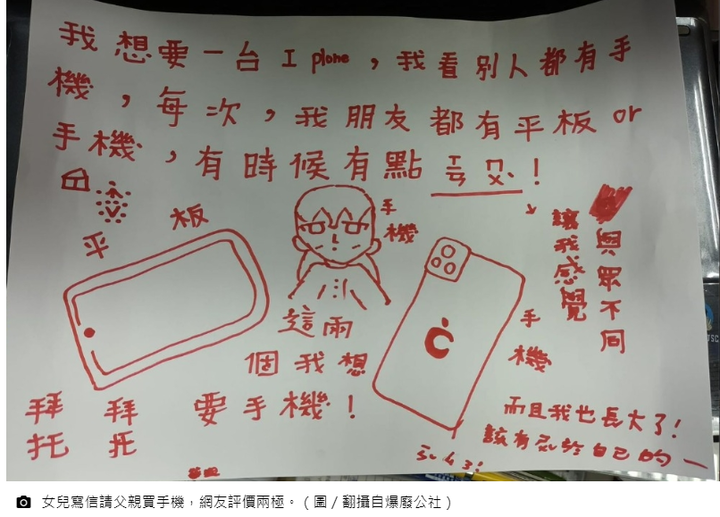 我想要一台 I plone，我看別人都有手
機，每次，我朋友都有平板 or
手機，有時候有點ㄎㄡ！
讓我感覺
與眾不同
平板
手機
這兩
個我想
要手機！
手機
拜 拜
托 托
而且我也長大了！
該有屬於自己的一
女兒寫信請父親買手機，網友評價兩極。（圖／翻攝自爆廢公社）